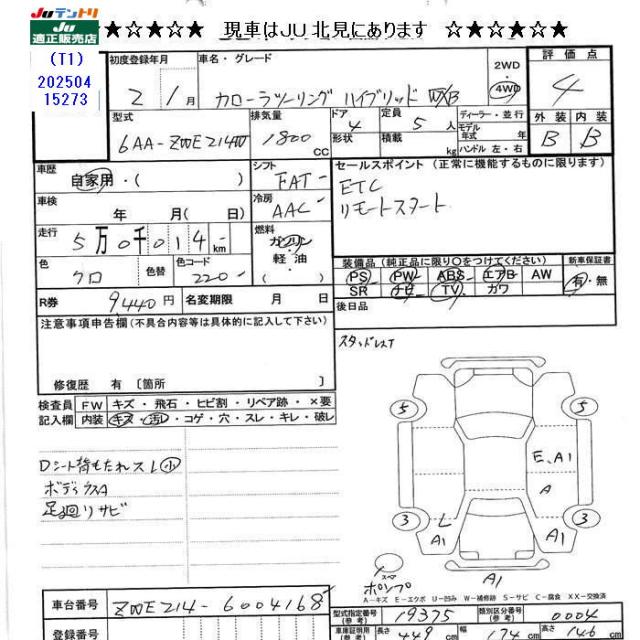 JUテントリ
JU
適正販売店
★☆★☆★☆ 現車はJU北見にあります ☆★☆★☆★
(T1)
202504
15273
初度登録年月
2年1月
車名・グレード
カローラツーリング ハイブリッド WXB
2WD
4WD
評価点
4
型式
6AA-ZWE214W
排気量
1800
CC
ドア
4
形状
定員
5人
積載
kg
ディーラー・並行
モデル年式 年
ハンドル 左・右
外装 内装
B B
車歴
自家用・( )
シフト
FAT
冷房
AAC
セールスポイント(正常に機能するものに限ります)
ETC
リモートスタート
車検
年 月( 日)
走行
5万0千014km
燃料
ガソリン
軽油
( )
色
クロ
色替
色コード
220
装備品(純正品に限り○をつけてください)
PS PW ABS エアB AW
SR ナビ TV カワ
新車保証書
有・無
R券
9440円
名変期限 月 日
後日品
注意事項申告欄(不具合内容等は具体的に記入して下さい)
修復歴 有 〔箇所 〕
スタッドレスT
検査員記入欄
FW キズ・飛石・ヒビ割・リペア跡・×要
内装 キズ・汚レ・コゲ・穴・スレ・キレ・破レ
Dシート背もたれスレ小
ボディウスA
足廻リサビ
5
5
E、A1
A
3
3
L
A1
A1
A1
スペア
ポンプ
A-キズ E-エクボ U-凹み W-補修跡 S-サビ C-腐食 XX-交換済
車台番号
ZWE214-6004168
登録番号
型式指定番号
(参考)
19375
類別区分番号
(参考)
0004
車庫証明用
(参考)
長さ
449
cm
幅
174
cm
高さ
146
cm